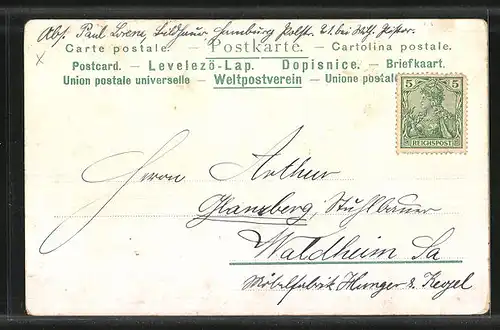 Abs. Paul Lorenz, Bildhauer, Hamburg
Carte postale. — Postkarte. — Cartolina postale.
Postcard. — Levelező-Lap. Dopisnice. — Briefkaart.
Union postale universelle — Weltpostverein — Unione postale
5 5
REICHSPOST
Herrn Arthur
Glanzberg, Stuhlbauer
Waldheim Sa
Möbelfabrik Hunger & Kegel